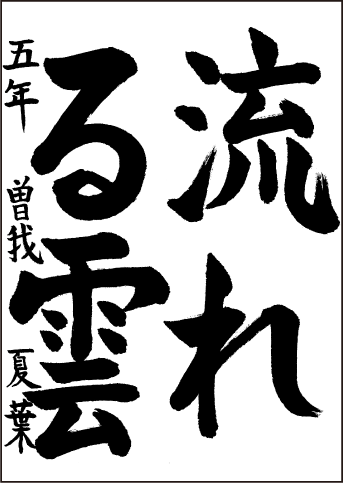 流れ
る雲
五年 曽我 夏葉